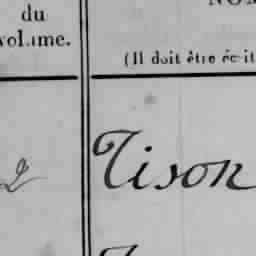 du
volume.
NOM
(Il doit être écrit
2
Tison